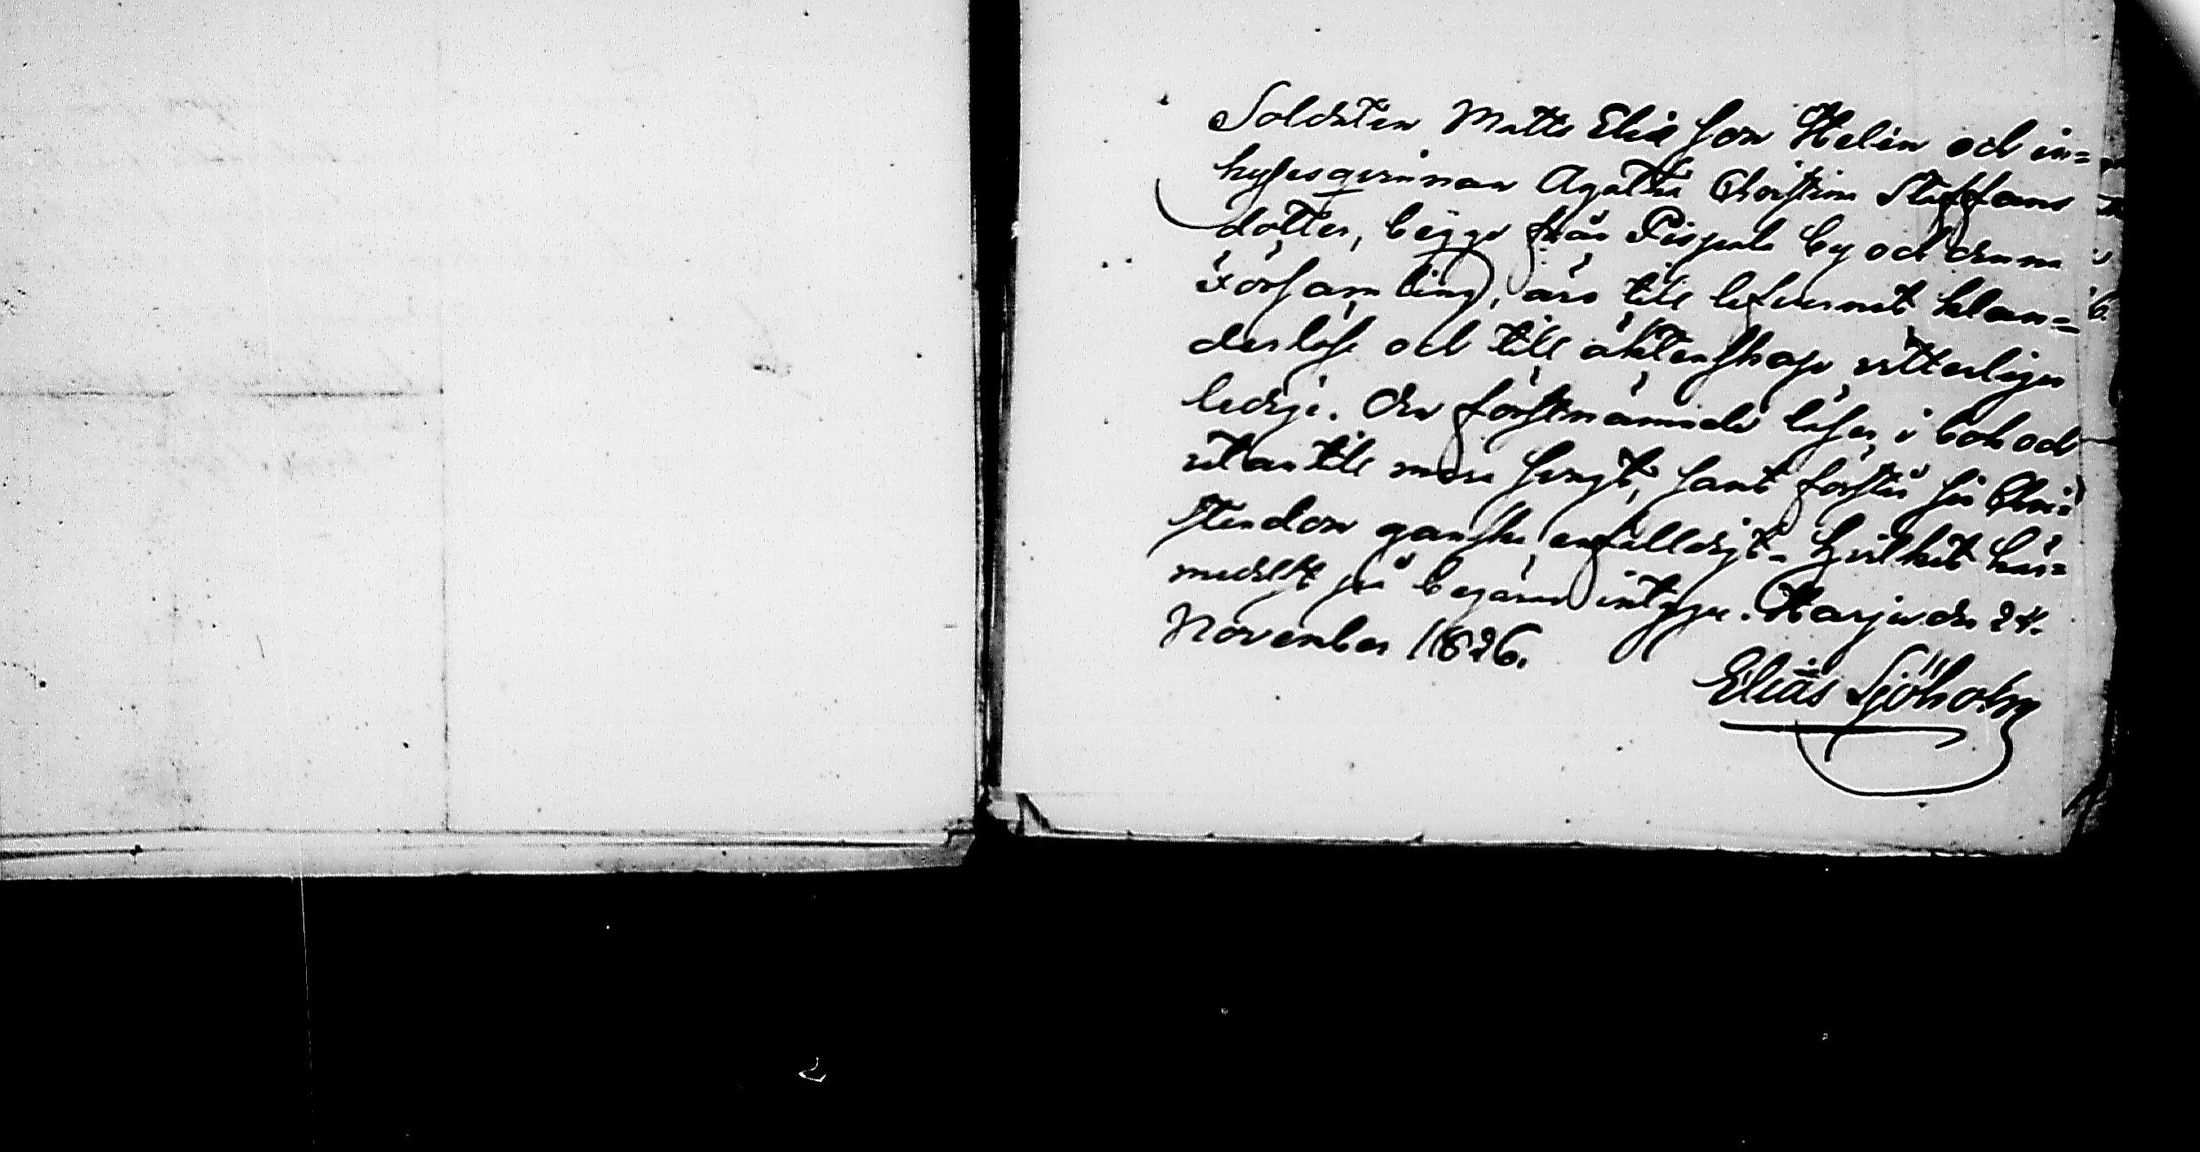 Soldaten Matts Eliæson Helin och in=
hysesqvinnan Agatha Christina Staffans
dotter, bägge från Pispala by och denna
Församling, äro till lefvernet klan=
derlöse och till äktenskap ritterligen
ledige. Den förstnämnde läser i bok och
utantill men svagt, samt förstår sin Chri=
stendom ganska enfalldigt. Hvilket här=
medelst på begäran intygar. Harju den 24.
November 1826.
Elias Sjöholm